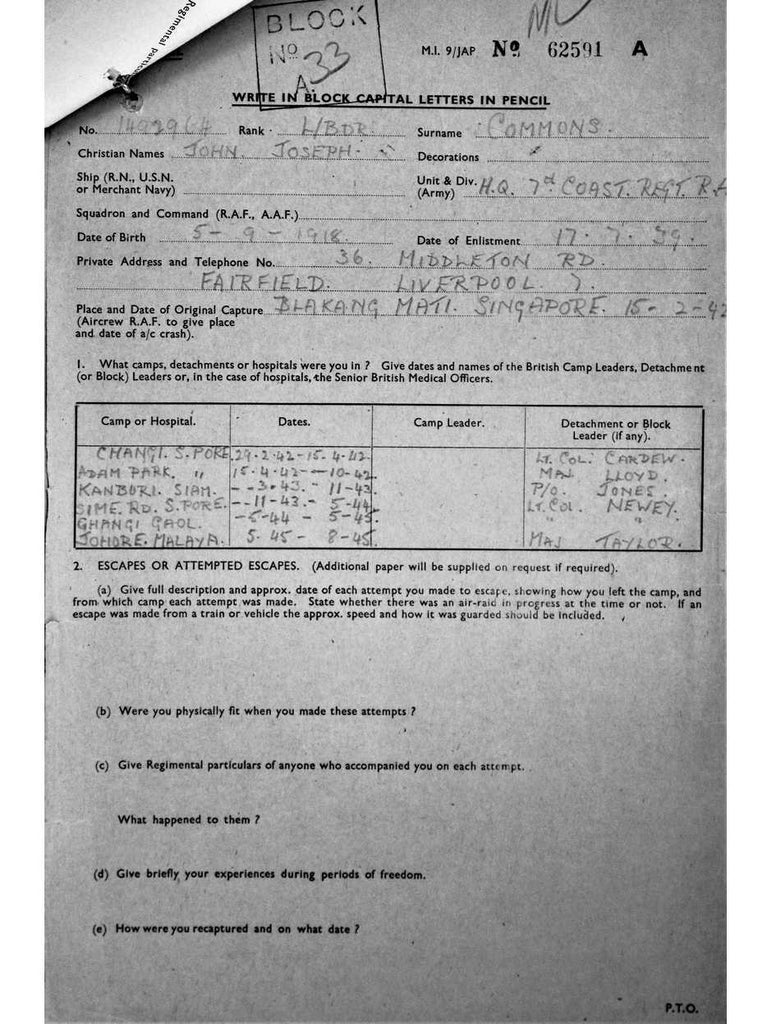 Regimental partic
BLOCK
Nº A.33
M.I. 9/JAP Nº 62591 A
WRITE IN BLOCK CAPITAL LETTERS IN PENCIL
No. 1492964 Rank L/BDR. Surname COMMONS.
Christian Names JOHN. JOSEPH. Decorations
Ship (R.N., U.S.N. or Merchant Navy) Unit & Div. (Army) H.Q. 7th COAST. REGT. R.A
Squadron and Command (R.A.F., A.A.F.)
Date of Birth 5-9-1918 Date of Enlistment 17.7.39.
Private Address and Telephone No. 36. MIDDLETON RD.
FAIRFIELD. LIVERPOOL 7.
Place and Date of Original Capture BLAKANG MATI. SINGAPORE. 15-2-42
(Aircrew R.A.F. to give place
and date of a/c crash).
1. What camps, detachments or hospitals were you in ? Give dates and names of the British Camp Leaders, Detachment
(or Block) Leaders or, in the case of hospitals, the Senior British Medical Officers.
Camp or Hospital. Dates. Camp Leader. Detachment or Block Leader (if any).
CHANGI. S.PORE. 29-2-42-15.4.42. LT. COL. CARDEW.
ADAM PARK. " 15.4.42--10-42. MAJ LLOYD.
KANBURI. SIAM. --3-43.- 11-43. P/O. JONES.
SIME. RD. S.PORE. --11-43.- 5-44. LT. COL. NEWEY.
CHANGI GAOL. -5-44 - 5-45. " "
JOHORE. MALAYA. 5.45- 8-45. MAJ TAYLOR.
2. ESCAPES OR ATTEMPTED ESCAPES. (Additional paper will be supplied on request if required).
(a) Give full description and approx. date of each attempt you made to escape, showing how you left the camp, and
from which camp each attempt was made. State whether there was an air-raid in progress at the time or not. If an
escape was made from a train or vehicle the approx. speed and how it was guarded should be included.
(b) Were you physically fit when you made these attempts ?
(c) Give Regimental particulars of anyone who accompanied you on each attempt.
What happened to them ?
(d) Give briefly your experiences during periods of freedom.
(e) How were you recaptured and on what date ?
P.T.O.